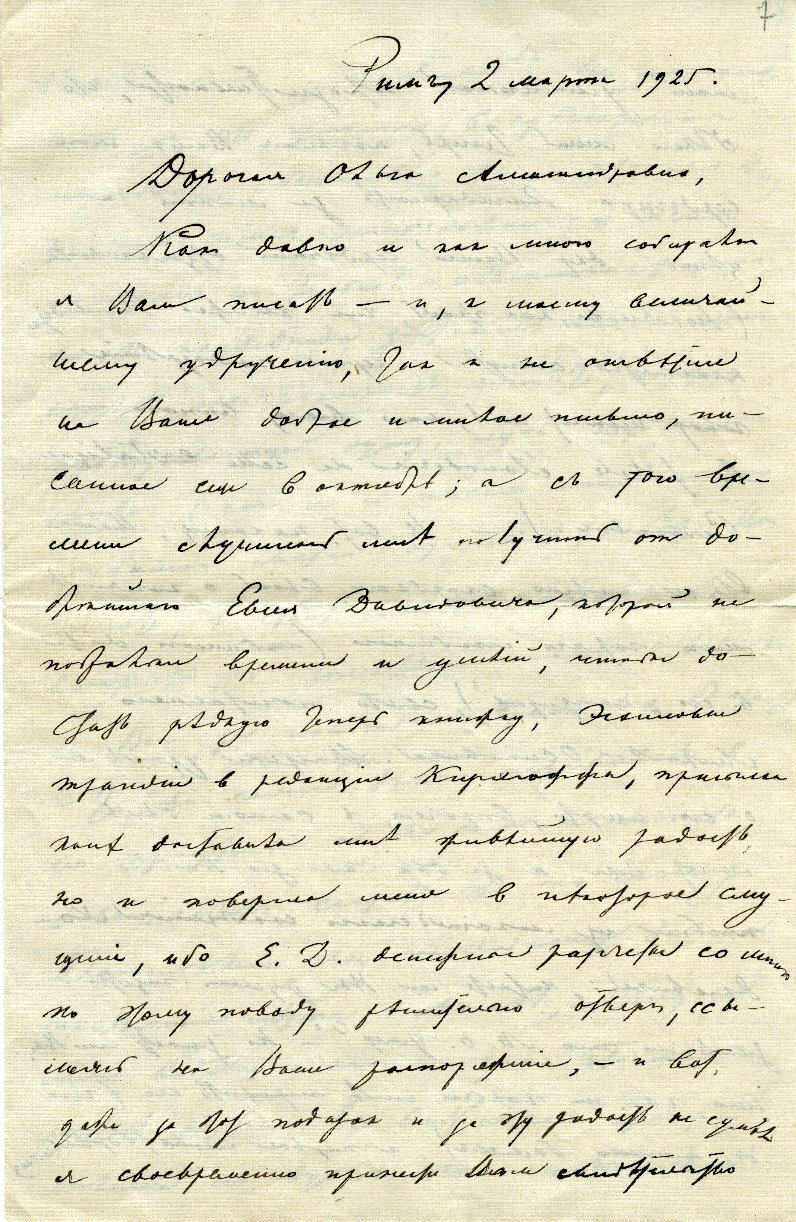 7
Римъ, 2 марта 1925.
Дорогая Ольга Александровна,
Какъ давно и как много собирался
я Вам писать — и, к моему величай-
шему удрученію, так и не отвѣтил
на Ваше доброе и милое письмо, пи-
санное еще в октябрѣ; а съ того вре-
мени случилось мнѣ получить от до-
брѣйшаго Евсея Давидовича, который не
пожалѣл времени и усилій, чтобы до-
стать рѣдкую теперь книжку, Эсхиловы
трагедіи в редакціи Кирхгоффа, присылка
коих доставила мнѣ живѣйшую радость,
но и повергла меня в нѣкоторое сму-
щеніе, ибо Е. Д. денежные расчеты со мною
по этому поводу рѣшительно отверг, ссы-
лаясь на Ваше распоряженіе, — и вот,
даже за этот подарок и за эту радость не сумѣл
я своевременно принести Вам свидѣтельство